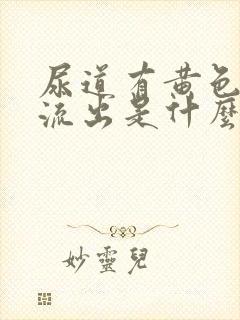 尿道有黄色
流出是什麼
妙靈兒